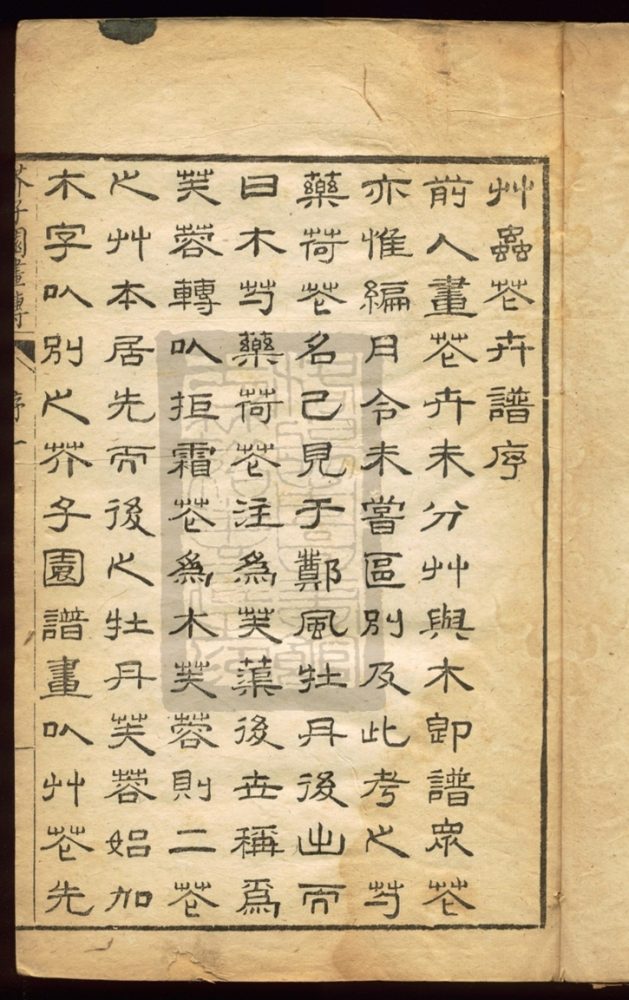 艸蟲芲卉譜序
前人畫芲卉未分艸與木卽譜眾芲
亦惟編月令未嘗區別及此考之芍
藥荷芲名已見于鄭風牡丹後出而
曰木芍藥荷芲注為芙蕖後世稱爲
芙蓉轉以拒霜芲為木芙蓉則二芲
之艸本居先而後之牡丹芙蓉始加
木字以別之芥子園譜畫以艸芲先
芥子園畫傳
序
一